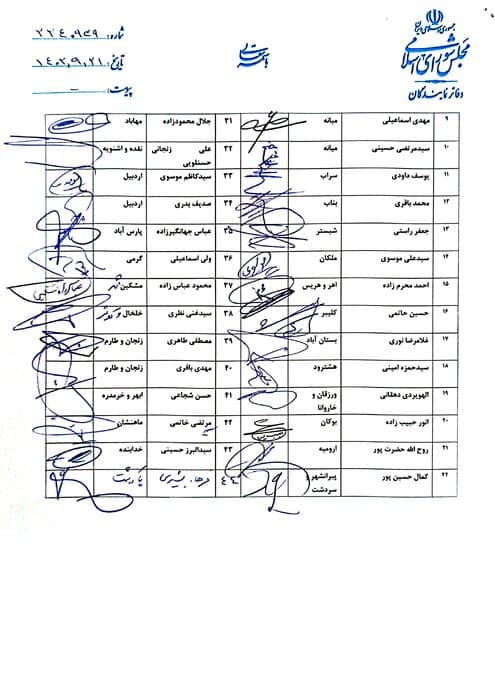 جمهوری اسلامی ایران
مجلس شورای اسلامی
دفاتر نمایندگان
شماره:
تاریخ: ۱۴۰۳,۹,۲۱
پیوست: -
۹ مهدی اسماعیلی میانه ۳۱ جلال محمودزاده مهاباد
۱۰ سیدمرتضی حسینی میانه ۳۲ علی زنجانی حسنلویی نقده و اشنویه
۱۱ یوسف داودی سراب ۳۳ سیدکاظم موسوی اردبیل
۱۲ محمد باقری بناب ۳۴ صدیف بدری اردبیل
۱۳ جعفر راستی شبستر ۳۵ عباس جهانگیرزاده پارس آباد
۱۴ سیدعلی موسوی ملکان ۳۶ ولی اسماعیلی گرمی
۱۵ احمد محرم زاده اهر و هریس ۳۷ محمود عباس زاده مشگین
۱۶ حسین حاتمی کلیبر ۳۸ سیدغنی نظری خلخال و کوثر
۱۷ غلامرضا نوری بستان آباد ۳۹ مصطفی طاهری زنجان و طارم
۱۸ سیدحمزه امینی هشترود ۴۰ مهدی باقری زنجان و طارم
۱۹ الهویردی دهقانی ورزقان و خاروانا ۴۱ حسن شجاعی ابهر و خرمدره
۲۰ انور حبیب زاده بوکان ۴۲ مرتضی خاتمی ماهنشان
۲۱ روح الله حضرت پور ارومیه ۴۳ سیدالبرز حسینی خدابنده
۲۲ کمال حسین پور پیرانشهر و سردشت ۴۴ فرهاد بشیری پاکدشت